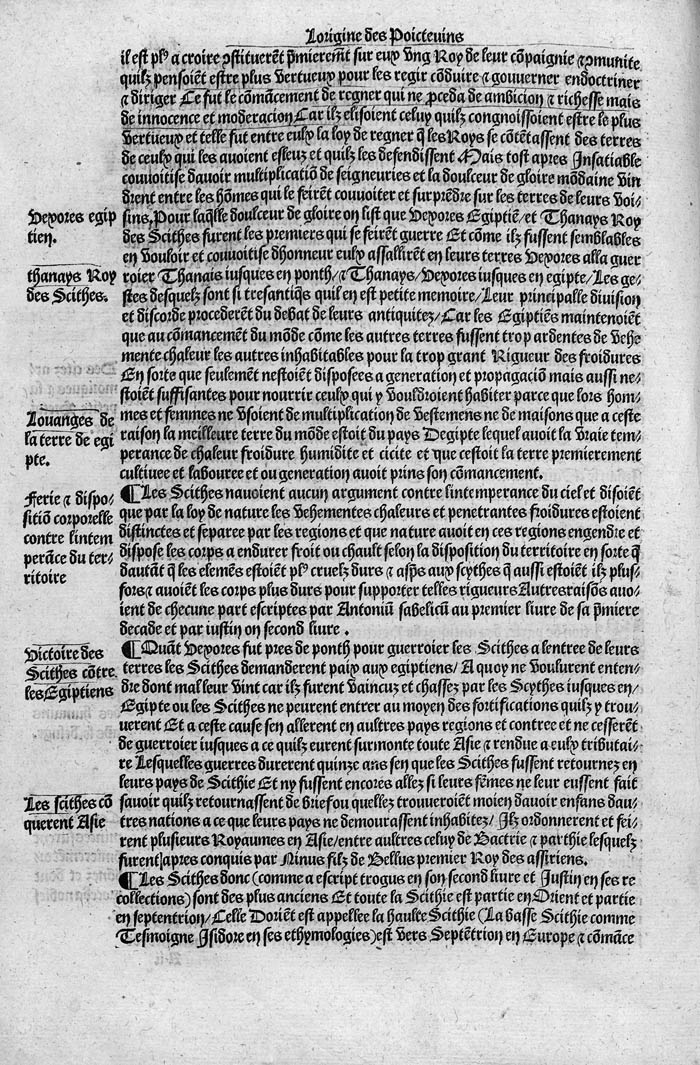 Lorigine des Poicteuins
il est plꝰ a croire ꝯstituerẽt p̃mieremẽt sur eux vng Roy de leur cõpaignie ⁊ ꝯmunite
quilz pensoiẽt estre plus vertueux pour les regir cõduire ⁊ gouuerner endoctriner
⁊ diriger Ce fut le cõmãcement de regner qui ne ꝓceda de ambicion ⁊ richesse mais
de innocence et moderacion Car ilz elisoient celuy quilz congnoissoient estre le plus
vertueux et telle fut entre eulx la loy de regner q̃ les Roys se cõtẽtassent des terres
de ceulx qui les auoient esleuz et quilz les defendissent Mais tost apres Insatiable
couuoitise dauoir multiplicatiõ de seigneuries et la doulceur de gloire mõdaine vin
drent entre les hõmes qui le feirẽt couuoiter et surprẽdre sur les terres de leurs voi-
Vexores egip
tien.
sins/Pour laq̃lle doulceur de gloire on list que Vexores Egiptiẽ/et Thanays Roy
des Scithes furent les premiers qui se feirẽt guerre Et cõme ilz fussent semblables
en vouloir et couuoitise dhonneur eulx assallirẽt en leurs terres Vexores alla guer
thanays Roy
des Scithes.
roier Thanais iusques en ponth/⁊ Thanays/Vexores iusques en egipte/Les ge-
stes desquelz sont si tresantiq̃s quil en est petite memoire/Leur principalle diuision
et discorde procederẽt du debat de leurs antiquitez/Car les Egiptiẽs maintenoiẽt
que au cõmãcement du mõde cõme les autres terres fussent trop ardentes de vehe
mente chaleur les autres inhabitables pour la trop grant Rigueur des froidures
En sorte que seulemẽt nestoiẽt disposees a generation et propagaciõ mais aussi ne-
stoiẽt suffisantes pour nourrir ceulx qui y vouldroient habiter parce que lors hom-
Louanges de
la terre de egi
pte.
mes et femmes ne vsoient de multiplication de vestemens ne de maisons que a ceste
raison la meilleure terre du mõde estoit du pays Degipte lequel auoit la vraie tem-
perance de chaleur froidure humidite et cicite et que cestoit la terre premierement
cultiuee et labouree et ou generation auoit prins son cõmancement.
Ferie ⁊ dispo-
sitiõ corporelle
contre lintem
perãce du ter-
ritoire
¶Les Scithes nauoient aucun argument contre lintemperance du ciel et disoiẽt
que par la loy de nature les vehementes chaleurs et penetrantes froidures estoient
distinctes et separee par les regions et que nature auoit en ces regions engendre et
dispose les corps a endurer froit ou chault selon la disposition du territoire en sorte q̃
dautãt q̃ les elemẽs estoiẽt plꝰ cruelz durs ⁊ asp̃s aux scythes q̃ aussi estoiẽt ilz plus-
fors ⁊ auoiẽt les corps plus durs pour supporter telles rigueurs Autres raisõs auo-
ient de checune part escriptes par Antoniũ sabelicũ au premier liure de sa p̃miere
decade et par iustin on second liure .
Victoire des
Scithes cõtre
les Egiptiens
¶Quãt Vexores fut pres de ponth pour guerroier les Scithes a lentree de leurs
terres les Scithes demanderent paix aux egiptiens/A quoy ne voulurent enten-
dre dont mal leur vint car ilz furent vaincuz et chassez par les Scythes iusques en/
Egipte ou les Scithes ne peurent entrer au moyen des fortifications quilz y trou-
uerent Et a ceste cause sen allerent en aultres pays regions et contree et ne cesserẽt
de guerroier iusques a ce quilz eurent surmonte toute Asie ⁊ rendue a eulx tributai-
re Lesquelles guerres durerent quinze ans sen que les Scithes fussent retournez en
leurs pays de Scithie Et ny fussent encores allez si leurs fẽmes ne leur eussent fait
Les scithes cõ
querent Asie
sauoir quilz retournassent de brief ou quellez trouueroiẽt moien dauoir enfans dau-
tres nations a ce que leurs pays ne demourassent inhabitez/ Ilz ordonnerent et fei-
rent plusieurs Royaumes en Asie/entre aultres celuy de Bactrie ⁊ parthie lesquelz
furent apres conquis par Ninus filz de Bellus premier Roy des assiriens.
¶Les Scithes donc (comme a escript trogus en son second liure et Justin en ses re
collections) sont des plus anciens Et toute la Scithie est partie en Orient et partie
en septentrion/Celle Doriẽt est appellee la haulte Scithie (La basse Scithie comme
Tesmoigne Isidore en ses ethymologies) est vers Septẽtrion en Europe ⁊ cõmãce